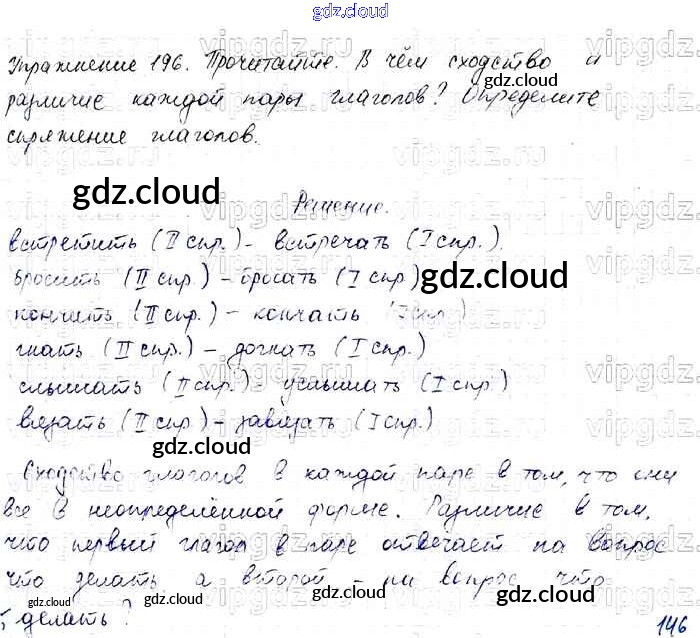 gdz.cloud
Упражнение 196. Прочитайте. В чём сходство и
различие каждой пары глаголов? Определите
спряжение глаголов.
gdz.cloud
gdz.cloud
Решение.
встретить (II спр.) - встречать (I спр.).
бросить (II спр.) - бросать (I спр.)
gdz.cloud
кончить (II спр.) - кончать (I спр.)
гнать (II спр.) - догнать (I спр.)
слышать (II спр.) - услышать (I спр.)
вязать (II спр.) - завязать (I спр.)
gdz.cloud
gdz.cloud
Сходство глаголов в каждой паре в том, что они
все в неопределённой форме. Различие в том,
что первый глагол в паре отвечает на вопрос
что делать а второй - на вопрос что
делать?
gdz.cloud
gdz.cloud
gdz.cloud
gdz.cloud
146